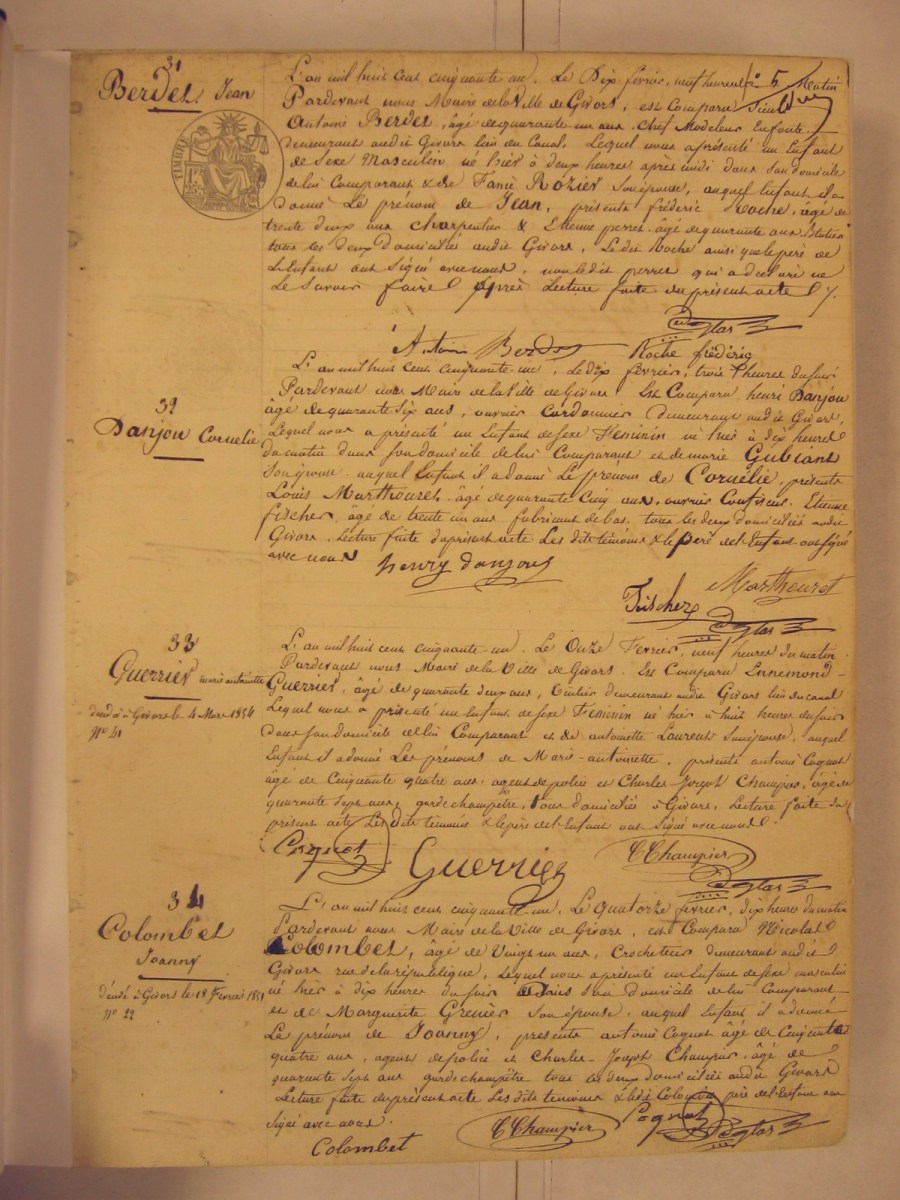 31
Berdet Jean
TIMBRE
L'an mil huit cent cinquante un, Le Dix fevrier, neuf heures Matin
f° 5
Pardevant nous Maire de la Ville de Givors, est Comparu Sieur
Antoine Berdet, âgé de quarante un ans, Chef Modeleur
demeurant audit Givors lieu du Canal, Lequel nous a présenté un Enfant
de Sexe Masculin né hier à deux heures après midi dans son domicile
de lui Comparant & de Rozier Son épouse, auquel Enfant il a
donné Le prénom de Jean, présents frédéric Roche, âgé de
trente deux ans Charpentier & Etienne perret âgé de quarante ans
tous les deux domiciliés audit Givors, Le dit Roche ainsi que le père de
L'Enfant ont Signé avec nous, non le dit perret qui a déclaré ne
Le Savoir faire Après Lecture faite du présent acte
Antoine Berdet Roche frédéric
32
Danjou Cornelie
L'an mil huit cent cinquante un, Le dix fevrier, trois heures du soir
Pardevant nous Maire de la Ville de Givors Est Comparu henri Danjou
âgé de quarante six ans, ouvrier Cordonnier demeurant audit Givors,
Lequel nous a présenté un Enfant de sexe Feminin né hier à dix heures
du matin dans son domicile de lui Comparant et de marie
Son épouse auquel Enfant il a donné Le prénom de Cornélie, présents
Louis Marthouret âgé de quarante Cinq ans, ouvrier Etienne
fischer, âgé de trente un ans fabricant de bas, tous les deux domiciliés audit
Givors, Lecture faite du présent acte Les dits témoins & le père de l'Enfant ont signé
avec nous
henry danjou
Marthouret
Fischer
33
Guerrier marie antoinette
décédée à Givors le 4 Mars 1854
N° 41
L'an mil huit cent cinquante un, Le Onze Fevrier, neuf heures du matin
Pardevant nous Maire de la Ville de Givors Est Comparu Ennemond
Guerrier, âgé de quarante deux ans, demeurant audit Givors lieu du canal
Lequel nous a présenté un Enfant de sexe Feminin né hier à huit heures du soir
dans son domicile de lui Comparant et de antoinette Laurent Son épouse, auquel
Enfant il a donné Les prénoms de Marie-antoinette, présents antoine Cognat
âgé de Cinquante quatre ans, agent de police et Charles Joseph Champier, âgé de
quarante Sept ans, garde champêtre, tous domiciliés à Givors, Lecture faite du
présent acte Les dits témoins & le père de l'Enfant ont Signé avec nous.
Cognat Guerrier CChampier
34
Colombet
Joanny
décédé à Givors le 18 Fevrier 1851
N° 22
L'an mil huit cent cinquante un, Le quatorze fevrier, dix heures du matin
Pardevant nous Maire de la Ville de Givors, est Comparu Nicolas
Colombet, âgé de Vingt un ans, Crocheteur demeurant audit
Givors rue de la république, Lequel nous a présenté un Enfant de sexe masculin
né hier à dix heures du soir dans son domicile de lui Comparant
et de Marguerite Grenier Son épouse, auquel Enfant il a donné
Le prénom de Joanny, présents antoine Cognat âgé de Cinquante
quatre ans, agent de police et Charles-Joseph Champier, âgé de
quarante Sept ans garde champêtre tous les deux domiciliés audit Givors
Lecture faite du présent acte Les dits témoins & le dit Colombet père de l'Enfant ont
Signé avec nous.
Colombet CChampier Cognat